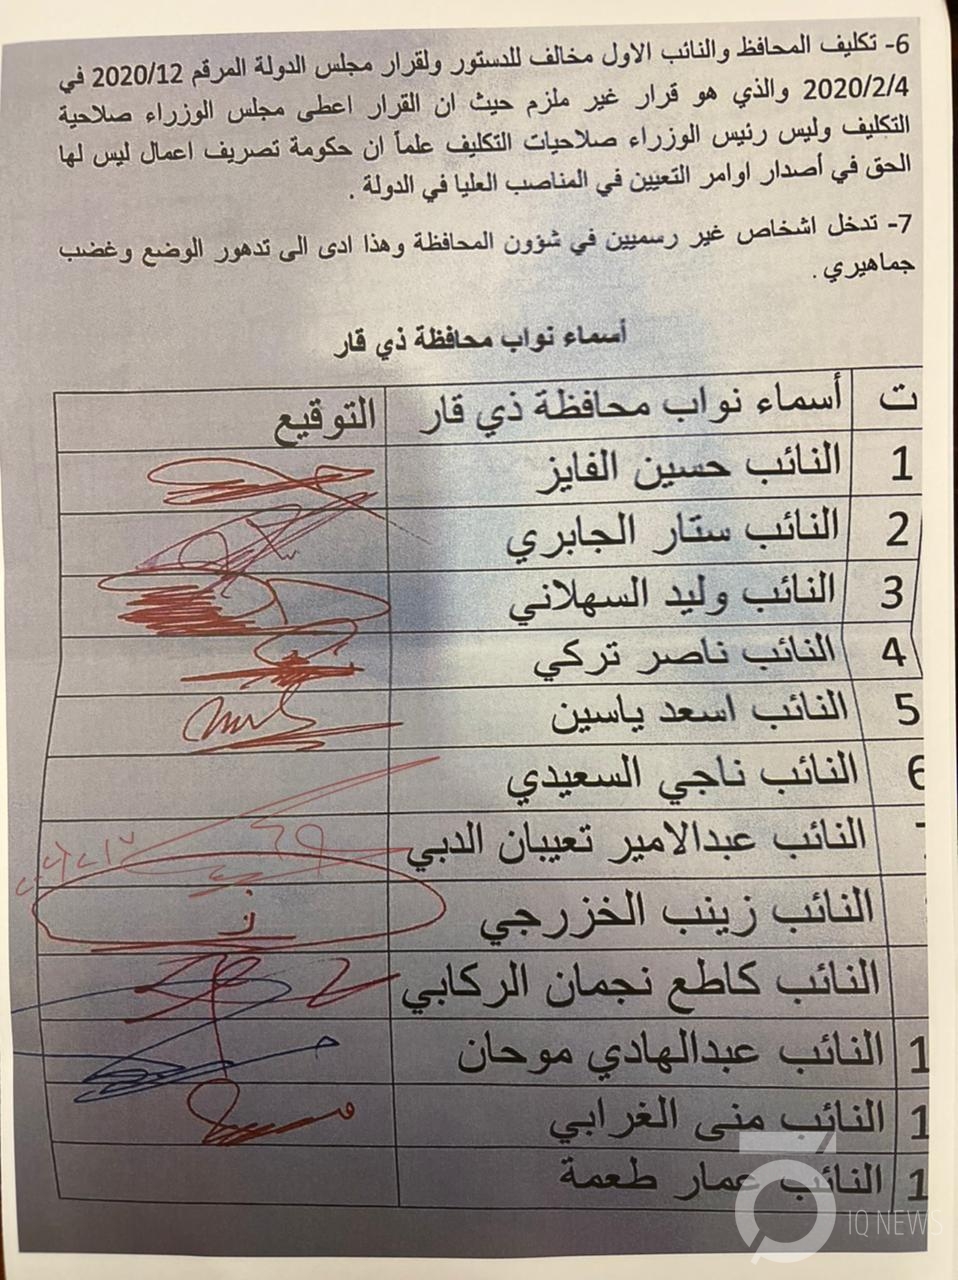 6- تكليف المحافظ والنائب الاول مخالف للدستور ولقرار مجلس الدولة المرقم 2020/12 في
2020/2/4 والذي هو قرار غير ملزم حيث ان القرار اعطى مجلس الوزراء صلاحية
التكليف وليس رئيس الوزراء صلاحيات التكليف علماً ان حكومة تصريف اعمال ليس لها
الحق في أصدار اوامر التعيين في المناصب العليا في الدولة .
7- تدخل اشخاص غير رسميين في شؤون المحافظة وهذا ادى الى تدهور الوضع وغضب
جماهيري .
أسماء نواب محافظة ذي قار
ت أسماء نواب محافظة ذي قار التوقيع
1 النائب حسين الفايز
2 النائب ستار الجابري
3 النائب وليد السهلاني
4 النائب ناصر تركي
5 النائب اسعد ياسين
6 النائب ناجي السعيدي
النائب عبدالامير تعيبان الدبي
النائب زينب الخزرجي
النائب كاطع نجمان الركابي
1 النائب عبدالهادي موحان
1 النائب منى الغرابي
1 النائب عمار طعمة
IQ NEWS